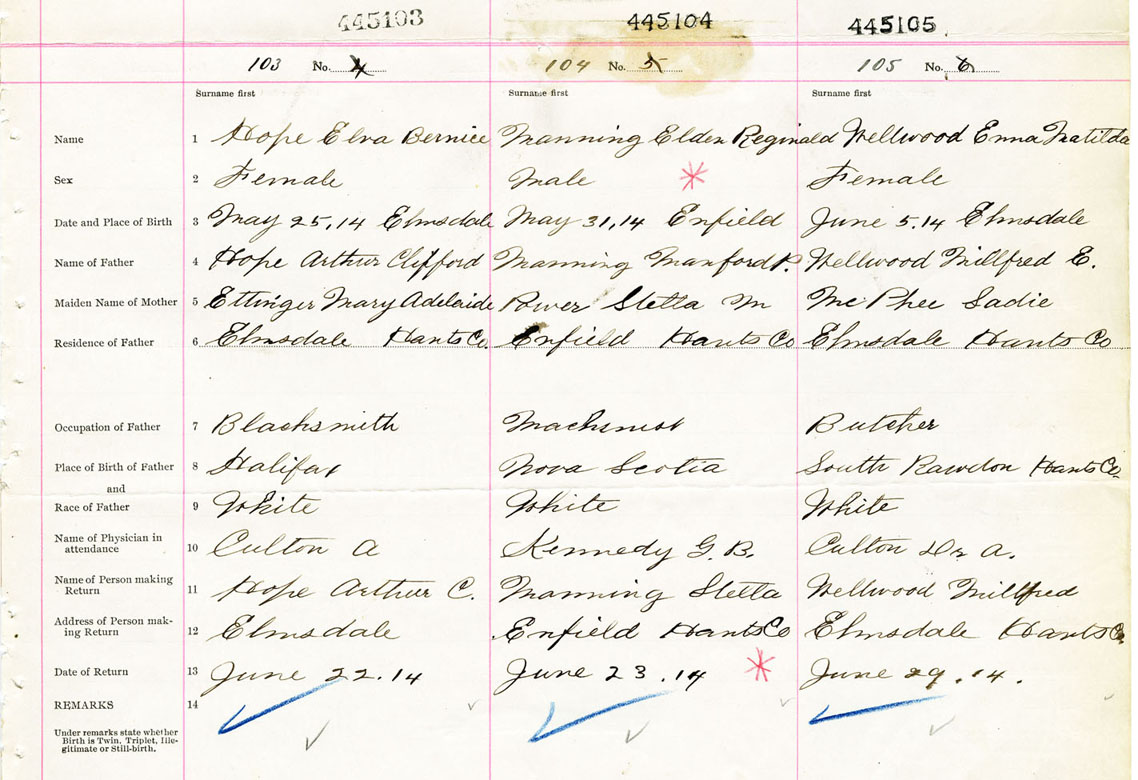 445103 445104 445105
103 No. 4 104 No. 5 105 No. 6
Surname first Surname first Surname first
Name 1 Hope Elva Bernice Manning Elden Reginald Wellwood Enna Matilda
Sex 2 Female Male Female
Date and Place of Birth 3 May 25, 14 Elmsdale May 31, 14 Enfield June 5. 14 Elmsdale
Name of Father 4 Hope Arthur Clifford Manning Manford P. Wellwood Millfred E.
Maiden Name of Mother 5 Ettinger Mary Adelaide Power Stella M McPhee Sadie
Residence of Father 6 Elmsdale Hants Co. Enfield Hants Co Elmsdale Hants Co
Occupation of Father 7 Blacksmith Machsnist Butcher
Place of Birth of Father 8 Halifax Nova Scotia South Rawdon Hants Co.
and
Race of Father 9 White White White
Name of Physician in
attendance 10 Culton A Kennedy G. B. Culton Dr A.
Name of Person making
Return 11 Hope Arthur C. Manning Stella Wellwood Millfred
Address of Person mak-
ing Return 12 Elmsdale Enfield Hants Co Elmsdale Hants Co.
Date of Return 13 June 22. 14 June 23. 14 June 29. 14.
REMARKS 14
Under remarks state whether
Birth is Twin, Triplet, Ille-
gitimate or Still-birth.